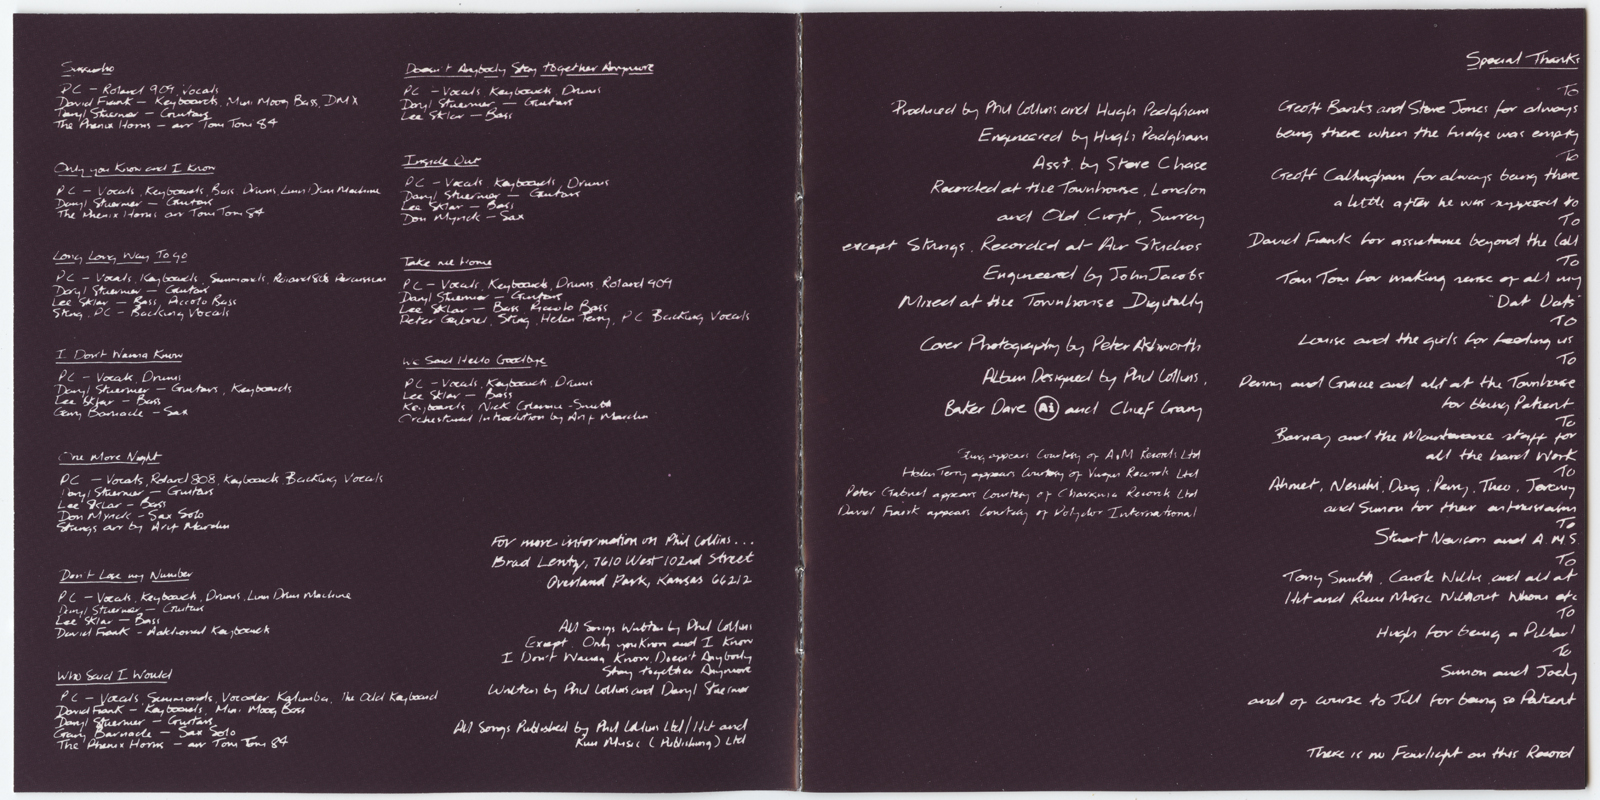 Sussudio
PC - Roland 909, Vocals
David Frank - Keyboards, Mini Moog Bass, DMX
Daryl Stuermer - Guitars
The Phenix Horns - arr Tom Tom 84
Only you Know and I Know
PC - Vocals, Keyboards, Bass Drums Linn Drum Machine
Daryl Stuermer - Guitars
The Phenix Horns arr Tom Tom 84
Long Long Way To go
PC - Vocals, Keyboards, Simmonds, Roland 808 Percussion
Daryl Stuermer - Guitars
Lee Sklar - Bass, Piccolo Bass
Sting, PC - Backing Vocals
I Don't Wanna Know
PC - Vocals, Drums
Daryl Stuermer - Guitars, Keyboards
Lee Sklar - Bass
Gary Barnacle - Sax
One More Night
PC - Vocals, Roland 808, Keyboards Backing Vocals
Daryl Stuermer - Guitars
Lee Sklar - Bass
Don Myrick - Sax Solo
Strings arr by Arif Mardin
Don't Lose my Number
PC - Vocals, Keyboards, Drums, Linn Drum Machine
Daryl Stuermer - Guitars
Lee Sklar - Bass
David Frank - Additional Keyboards
Who Said I Would
PC - Vocals, Simmonds, Vocoder, Kalimba, The Odd Keyboard
David Frank - Keyboards, Mini Moog Bass
Daryl Stuermer - Guitars
Gary Barnacle - Sax Solo
The Phenix Horns - arr Tom Tom 84
Doesn't Anybody Stay together Anymore
PC - Vocals Keyboards, Drums
Daryl Stuermer - Guitars
Lee Sklar - Bass
Inside Out
PC - Vocals, Keyboards, Drums
Daryl Stuermer - Guitars
Lee Sklar - Bass
Don Myrick - Sax
Take me Home
PC - Vocals, Keyboards, Drums, Roland 909
Daryl Stuermer - Guitars
Lee Sklar - Bass Piccolo Bass
Peter Gabriel, Sting, Helen Terry, PC Backing Vocals
We Said Hello Goodbye
PC - Vocals, Keyboards, Drums
Lee Sklar - Bass
Keyboards, Nick Glennie-Smith
Orchestral Introdution by Arif Mardin
For more information on Phil Collins...
Brad Lentz, 7610 West 102nd Street
Overland Park, Kansas 66212
All Songs Written by Phil Collins
Except. Only you Know and I Know
I Don't Wanna Know, Doesn't Anybody
Stay together Anymore
Written by Phil Collins and Daryl Stuermer
All Songs Published by Phil Collins Ltd/Hit and
Run Music (Publishing) Ltd
Produced by Phil Collins and Hugh Padgham
Engineered by Hugh Padgham
Asst. by Steve Chase
Recorded at the Townhouse, London
and Old Croft, Surrey
except Strings. Recorded at Air Studios
Engineered by John Jacobs
Mixed at the Townhouse Digitally
Cover Photography by Peter Ashworth
Album Designed by Phil Collins,
Baker Dave Ai and Chief Gray
Sting appears Courtesy of A&M Records Ltd
Helen Terry appears Courtesy of Virgin Records Ltd
Peter Gabriel appears Courtesy of Charisma Records Ltd
David Frank appears Courtesy of Polydor International
Special Thanks
To
Geoff Banks and Steve Jones for always
being there when the fridge was empty
To
Geoff Callingham for always being there
a little after he was supposed to
To
David Frank for assistance beyond the Call
To
Tom Tom for making sense of all my
"Dat Dats"
TO
Louise and the girls for feeding us
To
Penny and Gracie and all at the Townhouse
for being Patient
To
Barney and the Maintenance staff for
all the hard Work
To
Ahmet, Nesuhi, Doug, Perry, Theo, Jeremy
and Simon for their enthusiasm
To
Stuart Newison and AMS
To
Tony Smith, Carole Willis, and all at
Hit and Run Music Without Whom etc
To
Hugh for being a Pillar!
To
Simon and Joely
and of course to Jill for being so Patient
There is no Fairlight on this Record